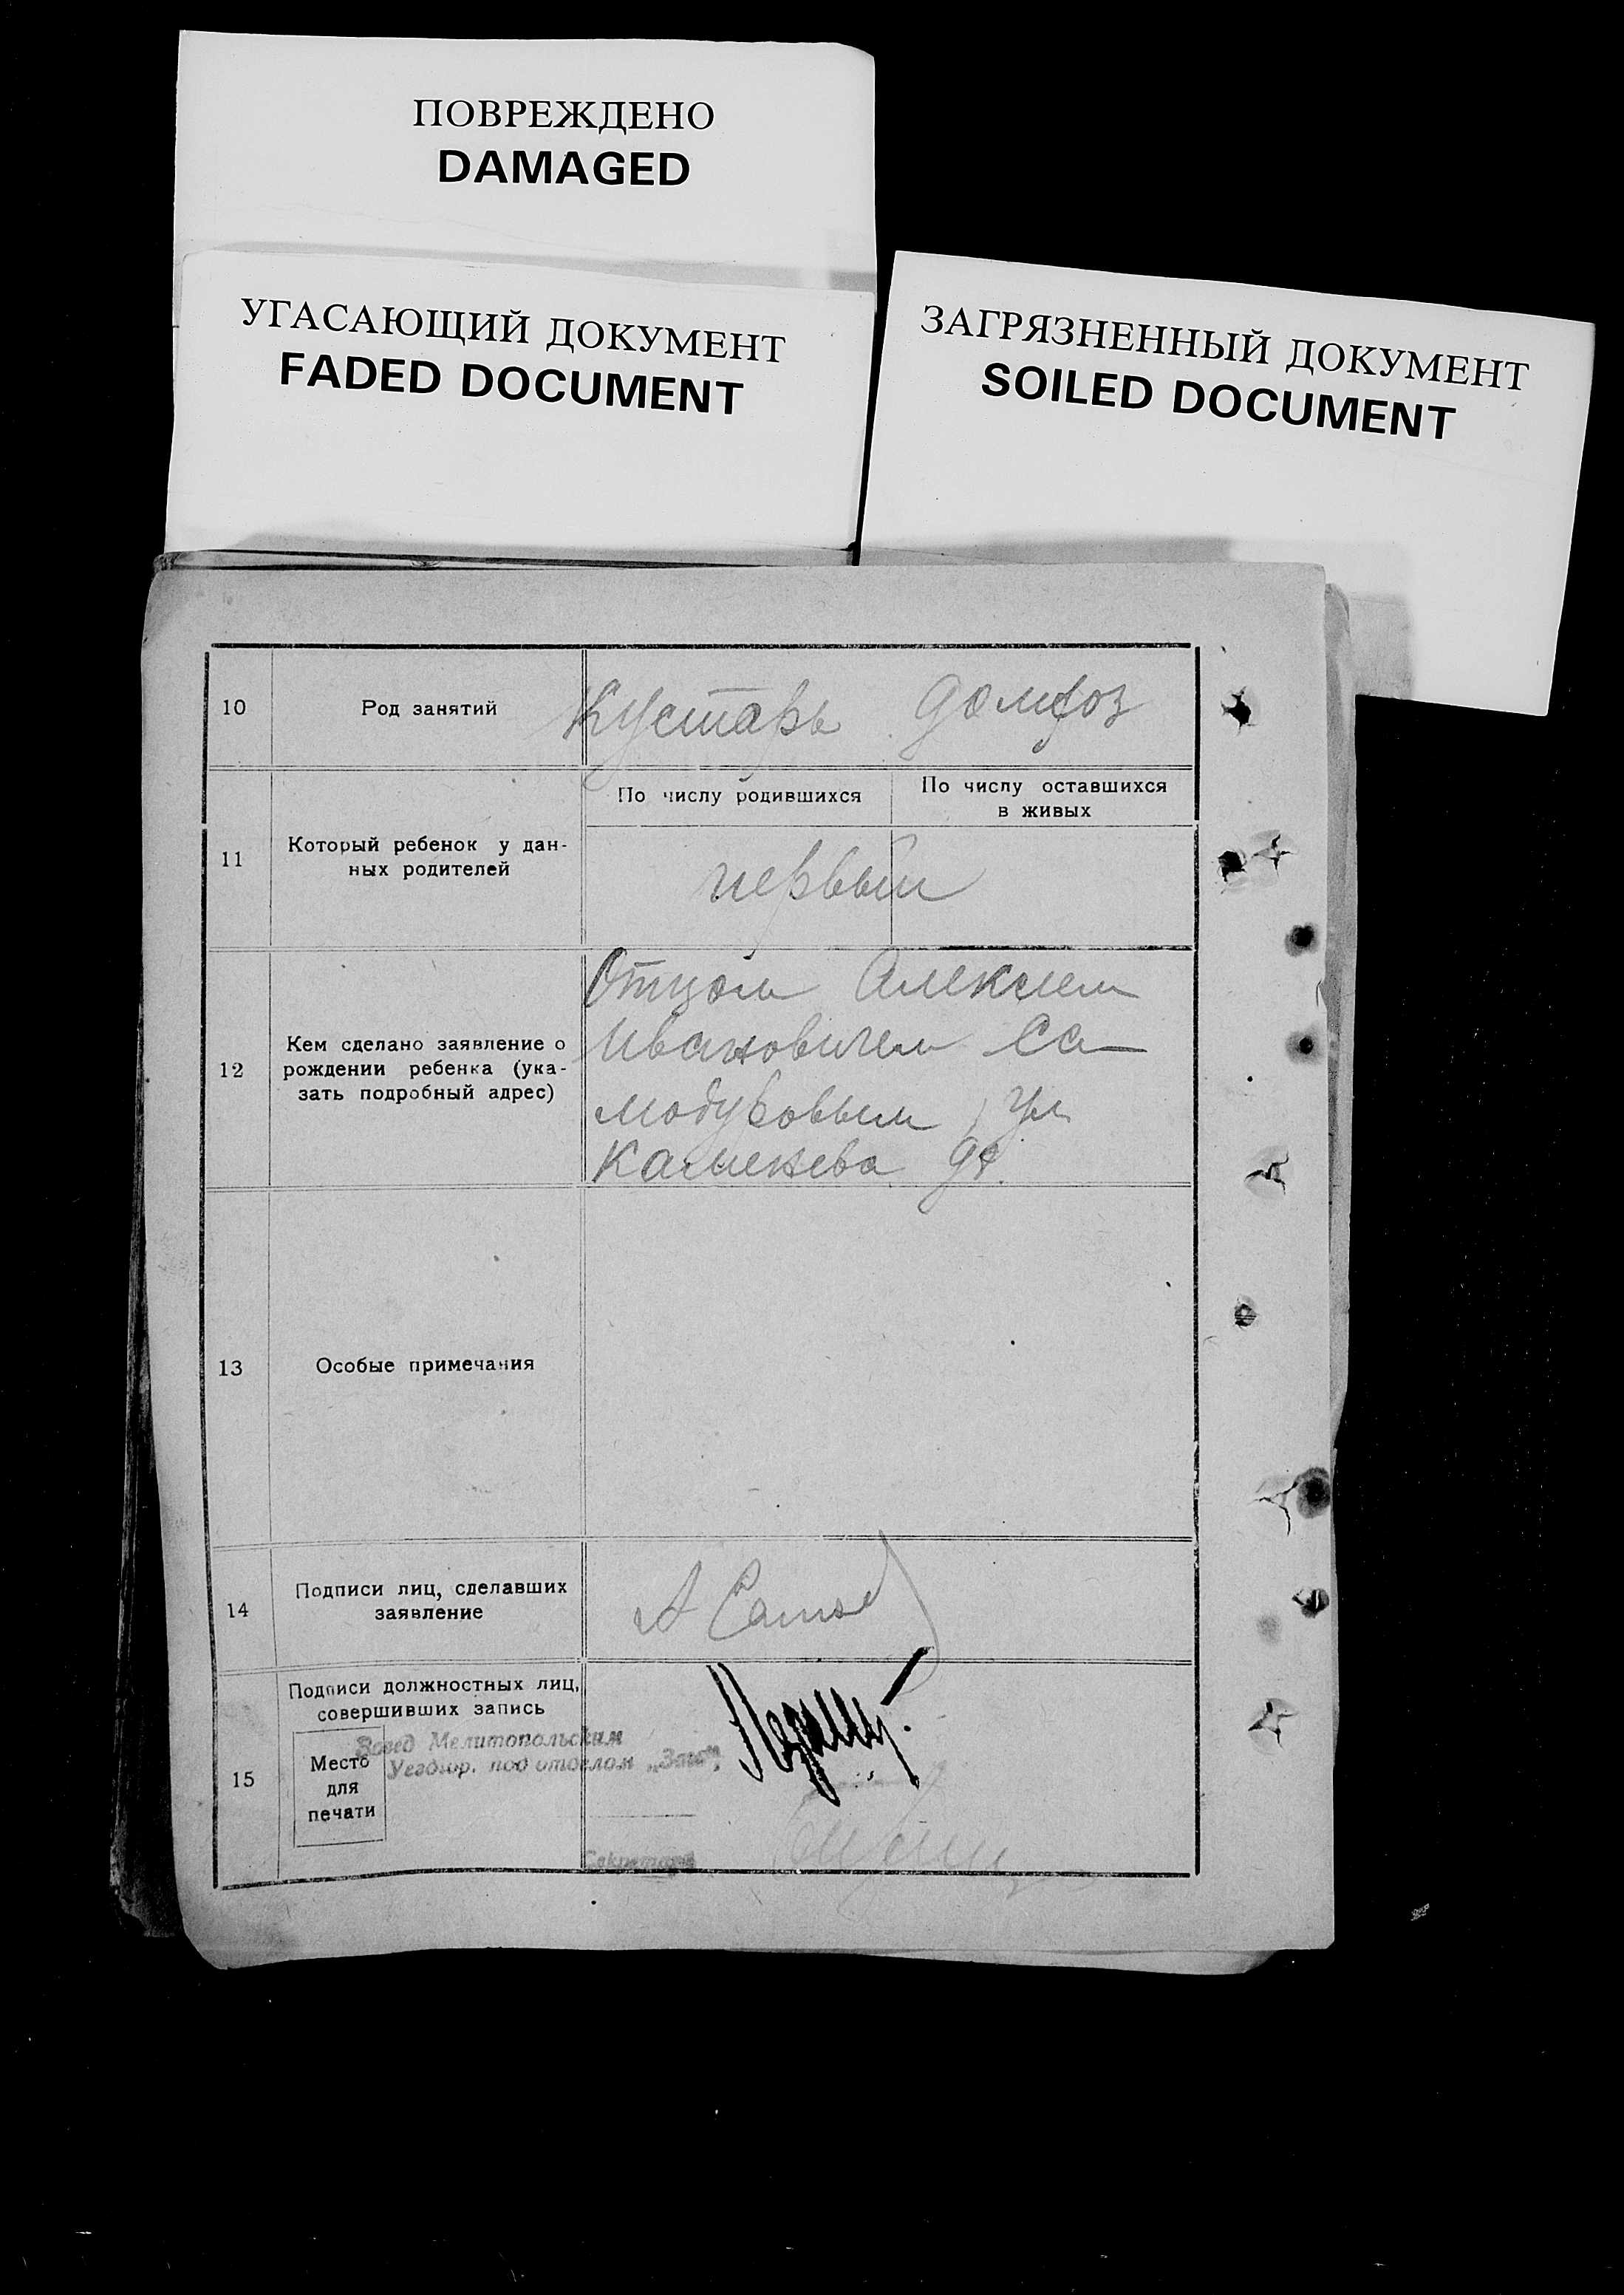 ПОВРЕЖДЕНО
DAMAGED
УГАСАЮЩИЙ ДОКУМЕНТ
FADED DOCUMENT
ЗАГРЯЗНЕННЫЙ ДОКУМЕНТ
SOILED DOCUMENT
10 Род занятий Кустарь домхоз
11 Который ребенок у дан-
ных родителей
По числу родившихся
По числу оставшихся
в живых
первый
12 Кем сделано заявление о
рождении ребенка (ука-
зать подробный адрес)
Отцом Алексеем
Ивановичем Са-
модуровым, ул
Каменева
13 Особые примечания
14 Подписи лиц, сделавших
заявление
А
15 Подписи должностных лиц,
совершивших запись
Место
для
печати
Завед Мелитопольским
под отделом „Загс“
Секретарь